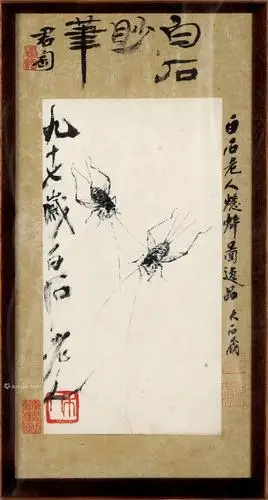 白石
妙筆
君匋
白石老人蟋蟀圖逸品 大石齋
九十七歲白石老人